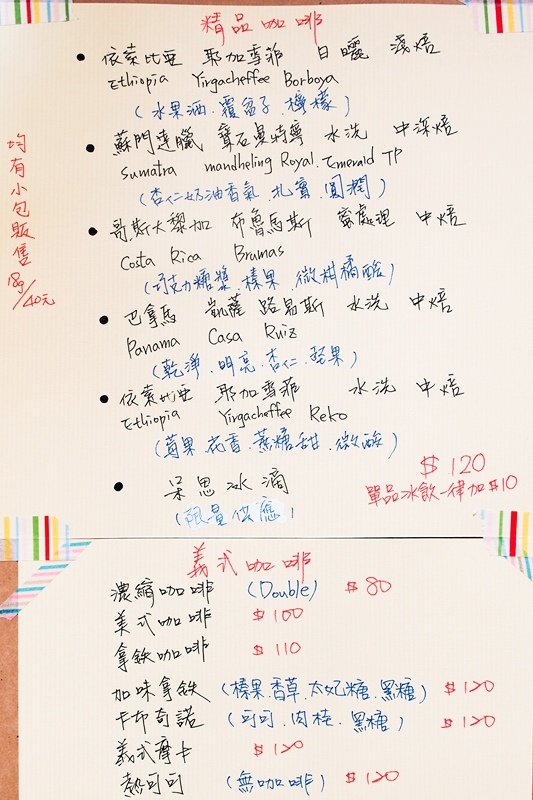 精品咖啡
依索比亞 耶加雪菲 日曬 淺焙
Ethiopia Yirgacheffee Borboya
(水果酒.覆盆子.檸檬)
蘇門達臘 寶石曼特寧 水洗 中深焙
Sumatra mandheling Royal.Emerald TP
(杏仁奶油香氣.扎實.圓潤)
哥斯大黎加 布魯馬斯 蜜處理 中焙
Costa Rica Brumas
(巧克力糖漿.榛果.微柑橘酸)
巴拿馬 凱薩 路易斯 水洗 中焙
Panama Casa Ruiz
(乾淨.明亮.杏仁.堅果)
依索比亞 耶加雪菲 水洗 中焙
Ethiopia Yirgacheffee Reko
(莓果.花香.蔗糖甜.微酸)
呆思冰滴
(限量供應)
$120
單品冰飲一律加$10
均有小包販售
/40元
義式咖啡
濃縮咖啡 (Double) $80
美式咖啡 $100
拿鐵咖啡 $110
加味拿鐵 (榛果.香草.太妃糖.黑糖) $120
卡布奇諾 (可可.肉桂.黑糖) $120
義式摩卡 $120
熱可可 (無咖啡) $120